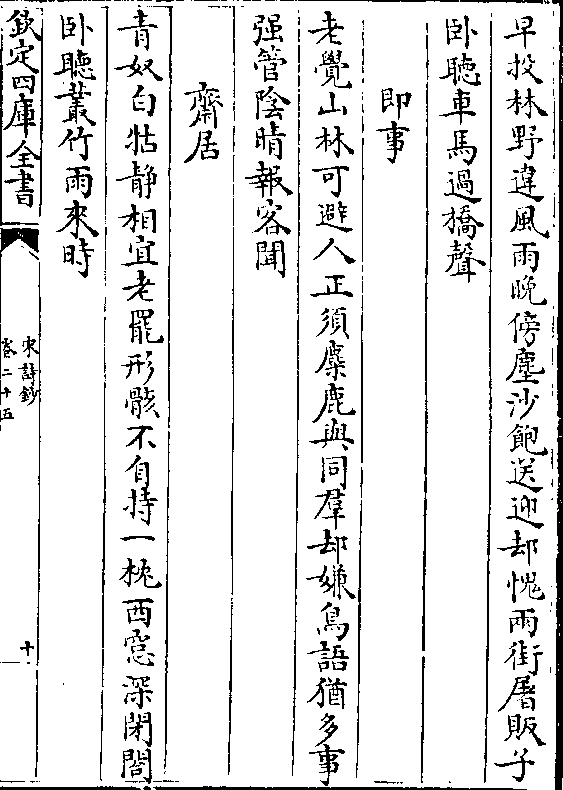 早投林野違風雨晚傍塵沙飽送迎却愧兩街屠販子
卧聽車馬過橋聲
即事
老覺山林可避人正須麋鹿與同羣却嫌鳥語猶多事
强管陰晴報客聞
齋居
青奴白牯静相宜老罷形骸不自持一枕西窓深閉閤
卧聽叢竹雨來時
欽定四庫全書
宋詩鈔
卷二十五
十